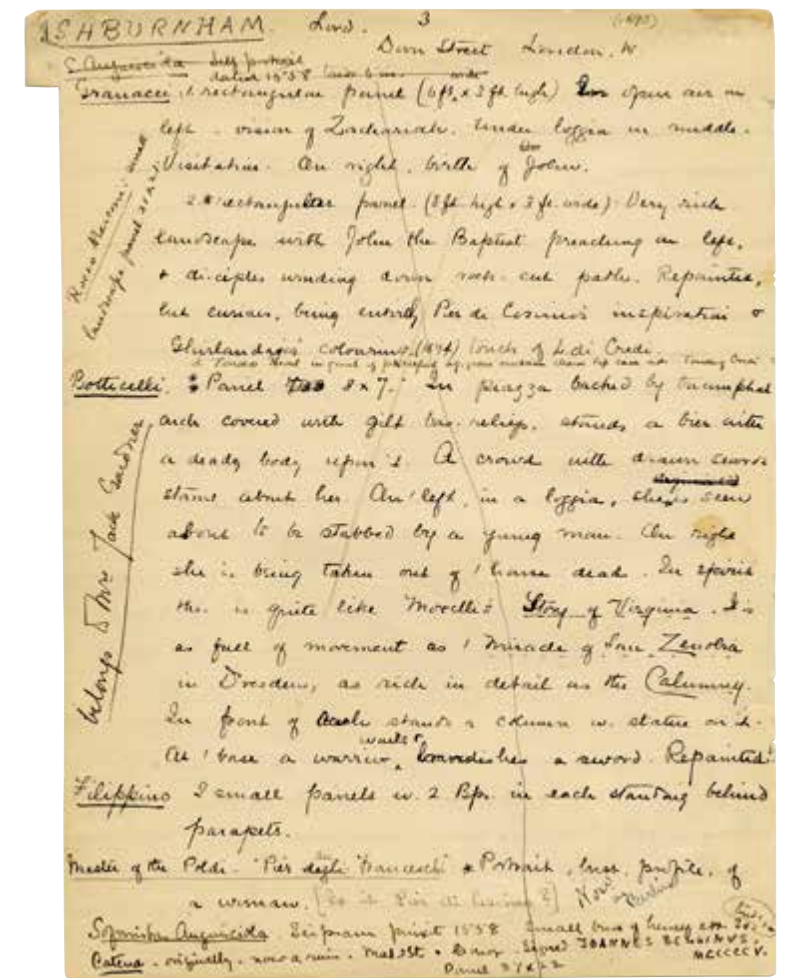 ASHBURNHAM. Lord. 3
Dorn Street London. W
S. Anguissola Self portrait
dated 1558
Granacci 1 rectangular panel (6 ft. x 3 ft high) In open air on
left - vision of Zachariah. Under loggia in middle.
Visitation. On right, birth of John.
2 rectangular panel. (8 ft high x 3 ft. wide) Very rich
landscape with John the Baptist preaching on left,
+ disciples winding down rock-cut paths. Repainted,
but curious, being entirely Pier di Cosimo's inspiration &
Ghirlandajo's colouring. (1894) touch of L. di Credi.
Rocco Marconi: small
landscape panel
Botticelli. Panel 8 x 7. In piazza backed by triumphal
arch covered with gilt bas-reliefs, stands a bier with
a deady body upon 't. A crowd with drawn swords
stand about her. On left, in a loggia, she is seen
about to be stabbed by a young man. On right
she is being taken out of ' house dead. In spirit
this is quite like Morelli's Story of Virginia. Is
as full of movement as ' Miracle of San Zenobia
in Dresden, as rich in detail as the Calumney.
In front of arch stands a column w. statue on it.
At ' base a warrior, brandishes a sword. Repainted
belongs to Mrs Jack Gardner
Filippino 2 small panels w. 2 Bps. in each standing behind
parapets.
Master of the Poldi - "Pier degli Franceschi" Portrait, bust, profile, of
a woman. [Is it Pier di Cosimo?] Now in Berlin
Sofonisba Anguissola pinxit 1558 Small bust of
Catena - originally - now a ruin. Mad. & St. + Donor. Signed JOANNES BELLINUS.
MCCCCCV.
Panel